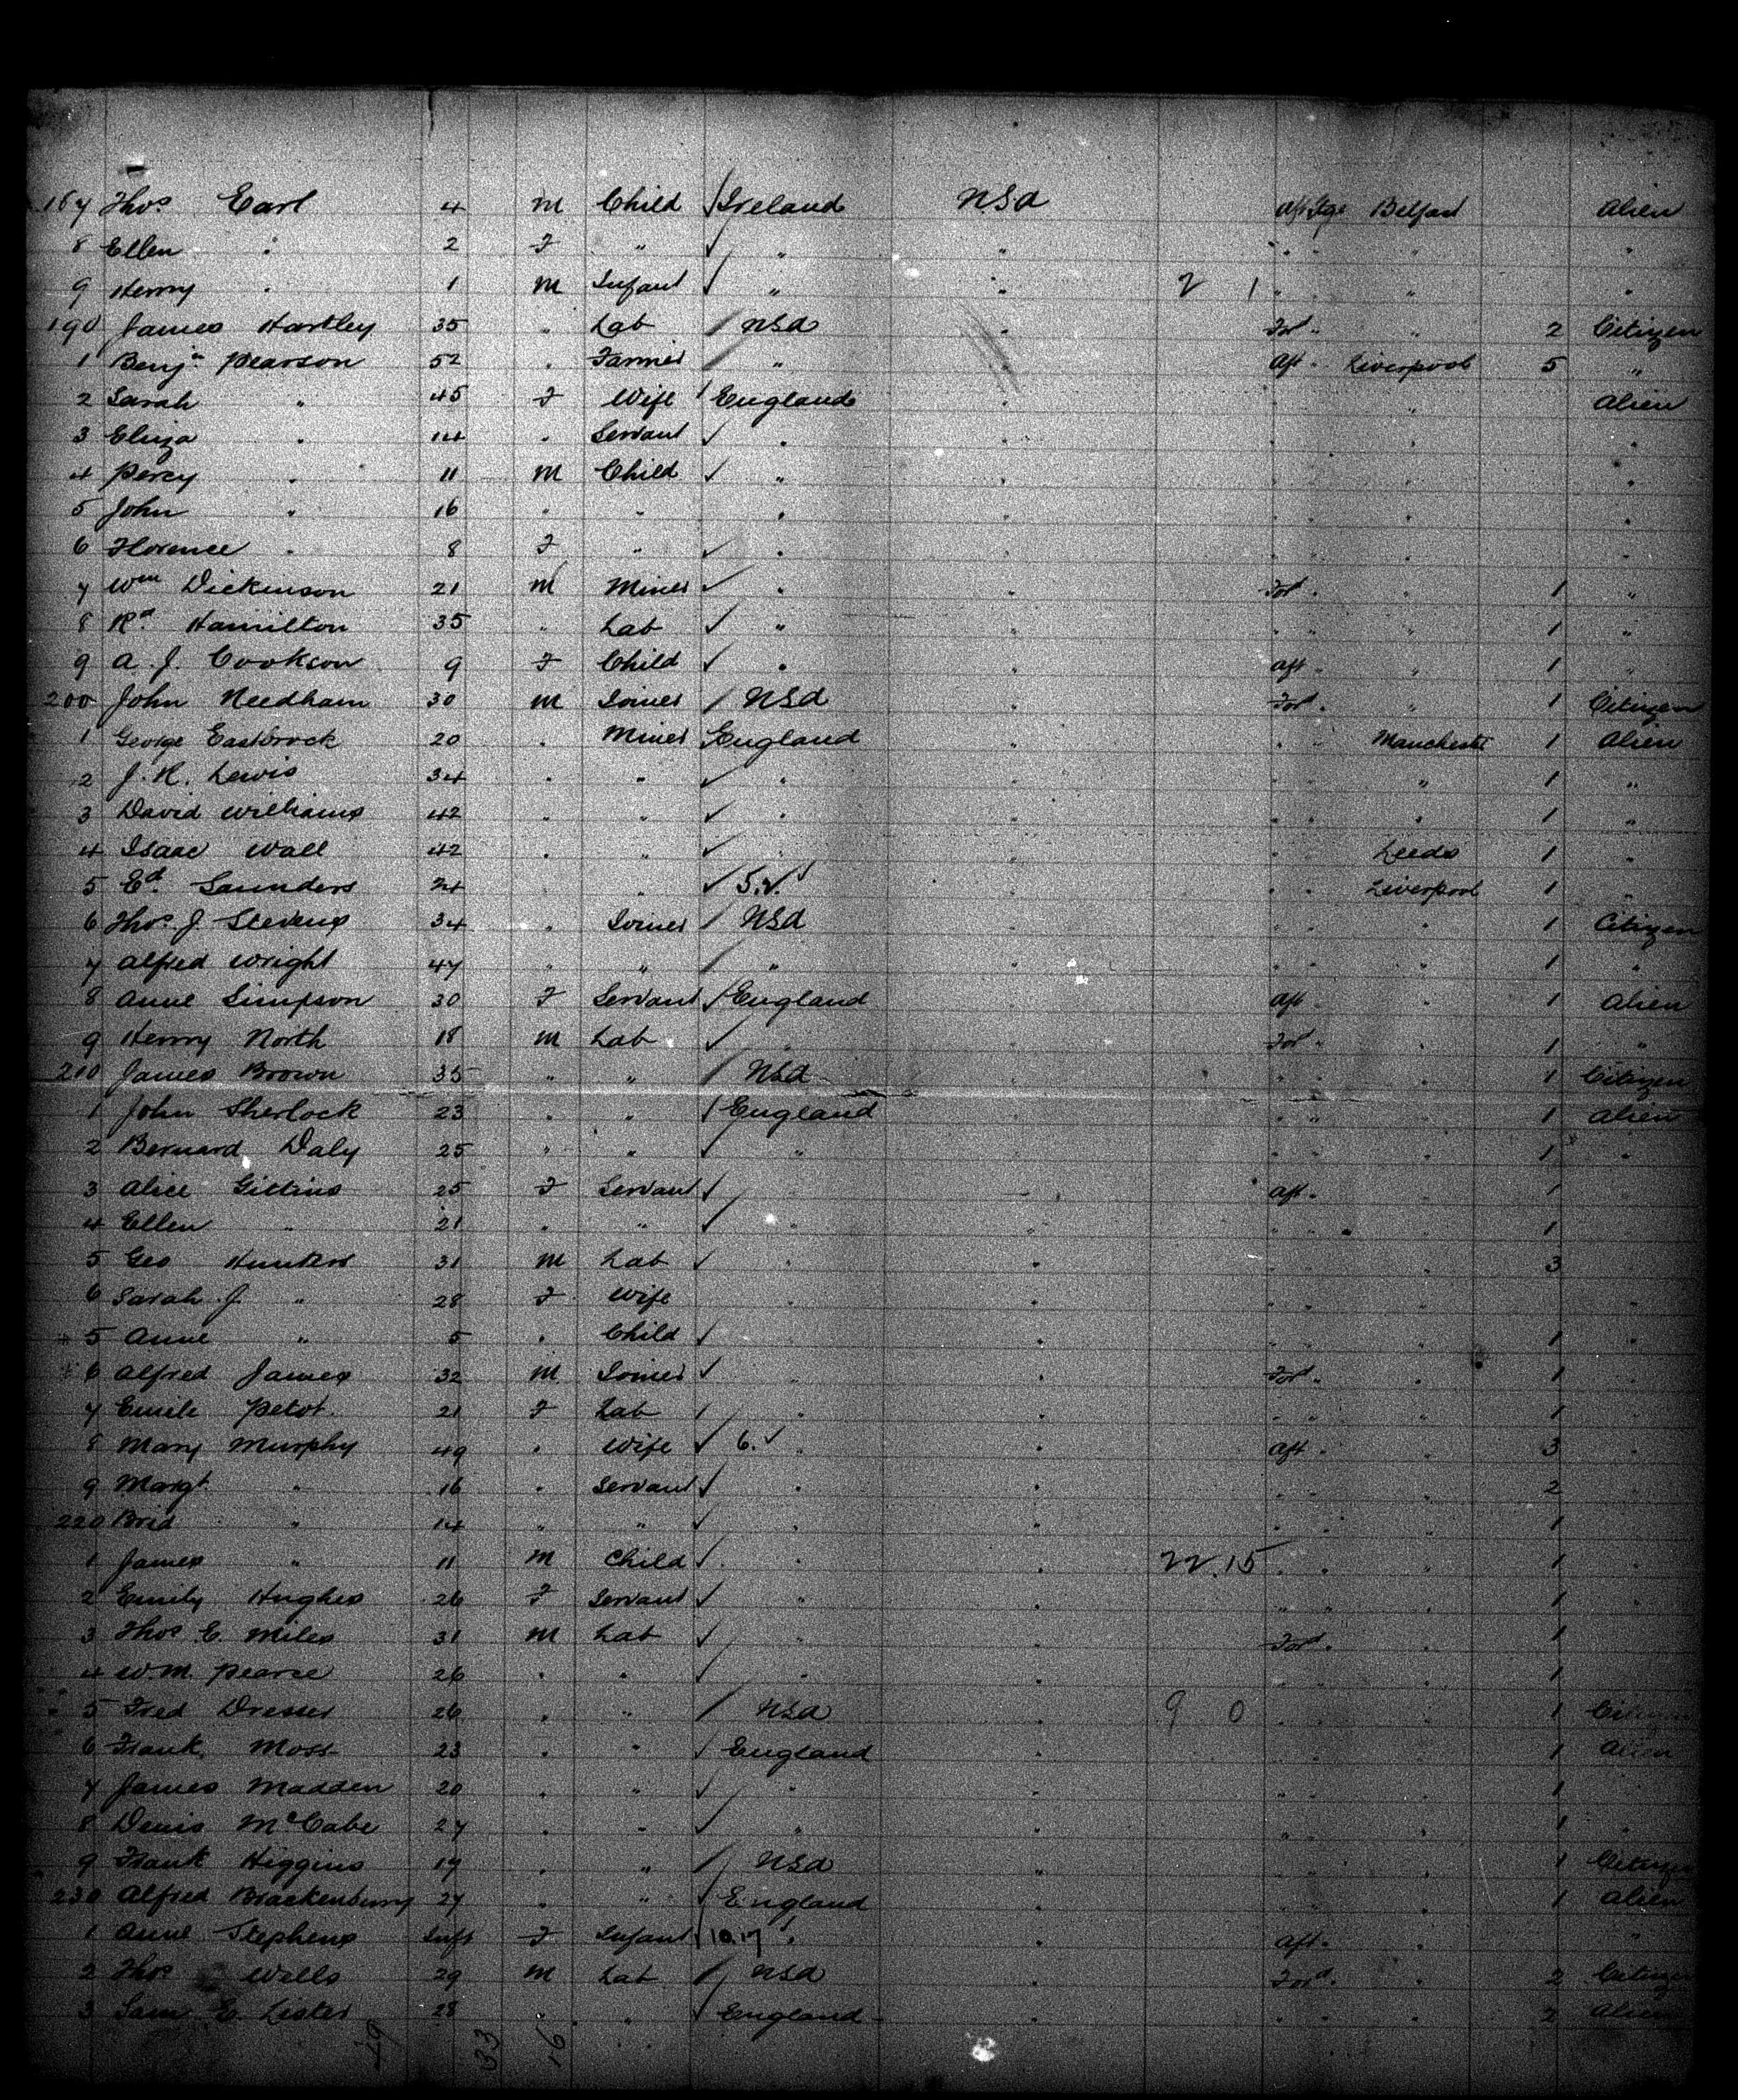 187 Thos Earl 4 M Child / Ireland NSA Aft Stge Belfast Alien
8 Ellen " 2 F " ✓ " " " " "
9 Henry " 1 M Infant ✓ " " 2 1 " " "
190 James Hartley 35 " Lab / NSA " Ford " " 2 Citizen
1 Benjn Pearson 52 " Farmer / " " Aft " Liverpool 5 "
2 Sarah " 45 F Wife / England " " " Alien
3 Eliza " 14 " Servant ✓ " " " " "
4 Percy " 11 M Child ✓ " " " " "
5 John " 16 " " " " " " "
6 Florence " 8 F " ✓ " " " " "
7 Wm Dickinson 21 M Miner ✓ " " Ford " " 1 "
8 Rd Hamilton 35 " Lab ✓ " " " " " 1 "
9 A. J. Cookson 9 F Child ✓ " " Aft " " 1 "
200 John Needham 30 M Joiner / NSA " Ford " " 1 Citizen
1 George Eastbrock 20 " Miner / England " " " Manchestr 1 Alien
2 J. H. Lewis 34 " " ✓ " " " " " 1 "
3 David Williams 42 " " ✓ " " " " " 1 "
4 Isaac Wall 42 " " ✓ " " " Leeds 1 "
5 Ed Saunders 24 " " ✓ 5.✓ " " Liverpool 1 "
6 Thos J Stevens 34 " Joiner / NSA " " " " 1 Citizen
7 Alfred Wright 47 " " / " " " " " 1 "
8 Anne Simpson 30 F Servant / England " Aft " " 1 Alien
9 Henry North 18 M Lab ✓ " " Ford " " 1 "
210 James Brown 35 " " / NSA " " " 1 Citizen
1 John Sherlock 23 " " / England " " " " 1 Alien
2 Bernard Daly 25 " " ✓ " " " " " 1 "
3 Alice Gittins 25 F Servant ✓ " Aft " " 1 "
4 Ellen " 21 " " ✓ " " " " " 1
5 Geo 31 M Lab ✓ " " " " 3
6 Sarah J. " 28 F Wife " " " " " "
5 Anne " 5 " Child ✓ " " " " 1 "
6 Alfred James 32 M Joiner ✓ " " Ford " " 1
7 Emile Petot 21 F Lab / " " " " " 1 "
8 Mary Murphy 49 " Wife ✓ 6.✓ " " Aft " " 3 "
9 Margt " 16 " Servant ✓ " " " " " 2
220 Brid " 14 " " ✓ " " " " " 1
1 James " 11 M Child ✓ " " 22.15 " " " 1
2 Emily Hughes 26 F Servant ✓ " " " " " 1 "
3 Thos E. Miles 31 M Lab ✓ " " Ford " " 1
4 W.M. Pearce 26 " " ✓ " " " 1
5 Fred Dresser 26 " " / NSA " 9 0 " " 1 Citizen
6 Frank Moss 23 " " / England " " " " 1 Alien
7 James Madden 20 " " ✓ " " " " " 1 "
8 Denis McCabe 27 " " ✓ " " " " " 1 "
9 Frank Higgins 19 " " / NSA " " " " 1 Citizen
230 Alfred Brackenbury 27 " " / England " " " " 1 Alien
1 Anne Stephens Inft F Infant / 10.17 " " Aft " " "
2 Thos Wells 29 M Lab / NSA " Ford " " 2 Citizen
3 Sam E. Lister 28 " " / England " " " " 2 Alien
49 33 16